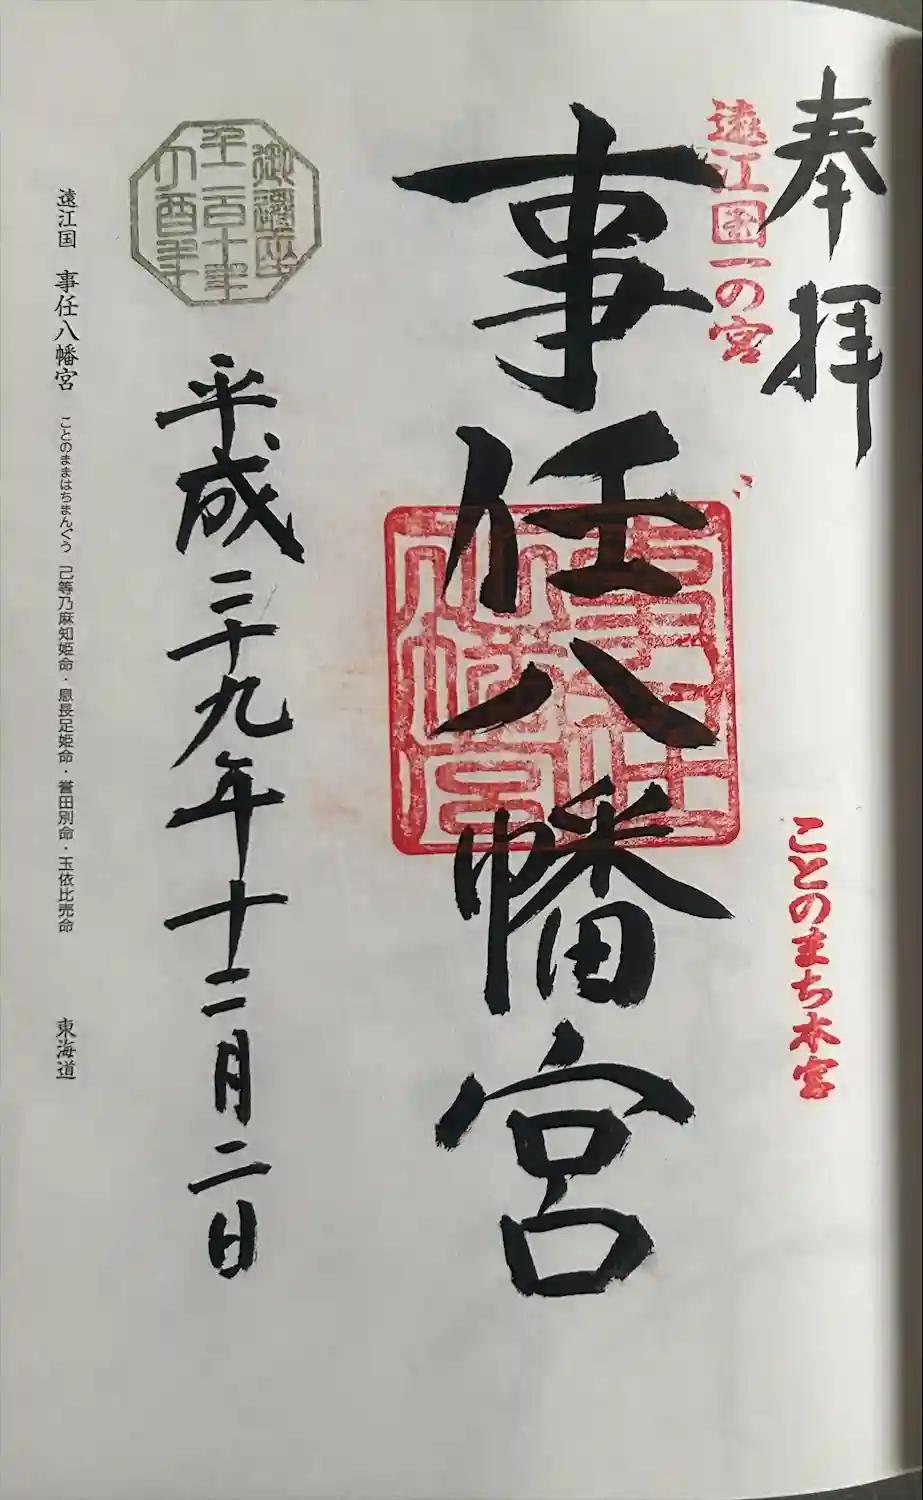 奉拝
遠江国一の宮
ことのまち本宮
事任八幡宮
事任
八幡宮
御遷座
千二百十年
丁酉年
平成二十九年十二月二日
遠江国 事任八幡宮 ことのままはちまんぐう 己等乃麻知姫命・息長足姫命・誉田別命・玉依比売命 東海道